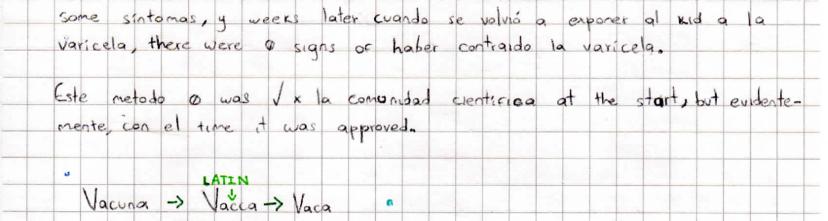 some síntomas, y weeks later cuando se volvió a exponer al kid a la
varicela, there were ∅ signs of haber contraido la varicela.
Este metodo ∅ was √ x la comunidad científica at the start, but evidente-
mente, con el time it was approved.
LATIN
↓
Vacuna → Vacca → Vaca